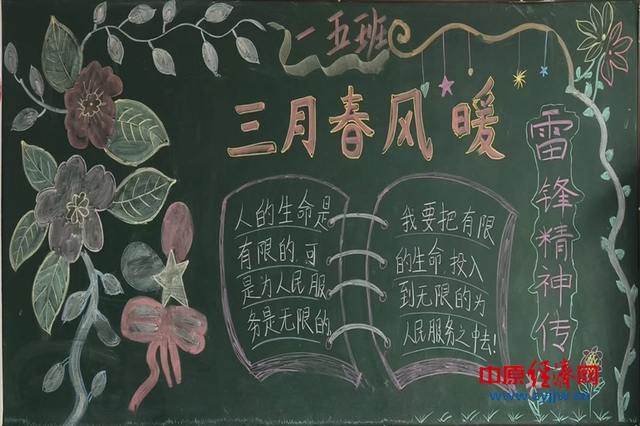 一五班
三月春风暖
雷锋精神传
人的生命是
有限的,可
是为人民服
务是无限的,
我要把有限
的生命,投入
到无限的为
人民服务之中去!
中原经济网
www.zyjjw.cn